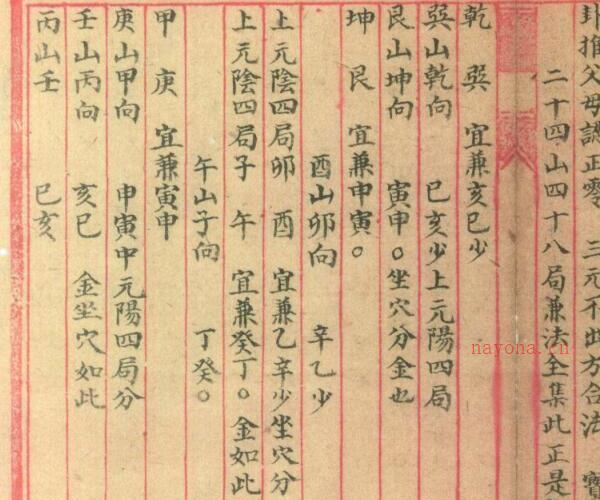 卦推父母誠正零 三元不此方合法 寶
二十四山四十八局兼法全集此正是
乾 巽 宜兼亥巳少
巽山乾向 巳亥少上元陽四局
艮山坤向 寅申。坐穴分金也
坤 艮 宜兼申寅。
酉山卯向 辛乙少
上元陰四局卯 酉 宜兼乙辛少坐穴分
上元陰四局子 午 宜兼癸丁。金如此
午山子向 丁癸。
甲 庚 宜兼寅申
庚山甲向 申寅中元陽四局分
壬山丙向 亥巳 金坐穴如此
丙山壬 巳亥
nayona.cn